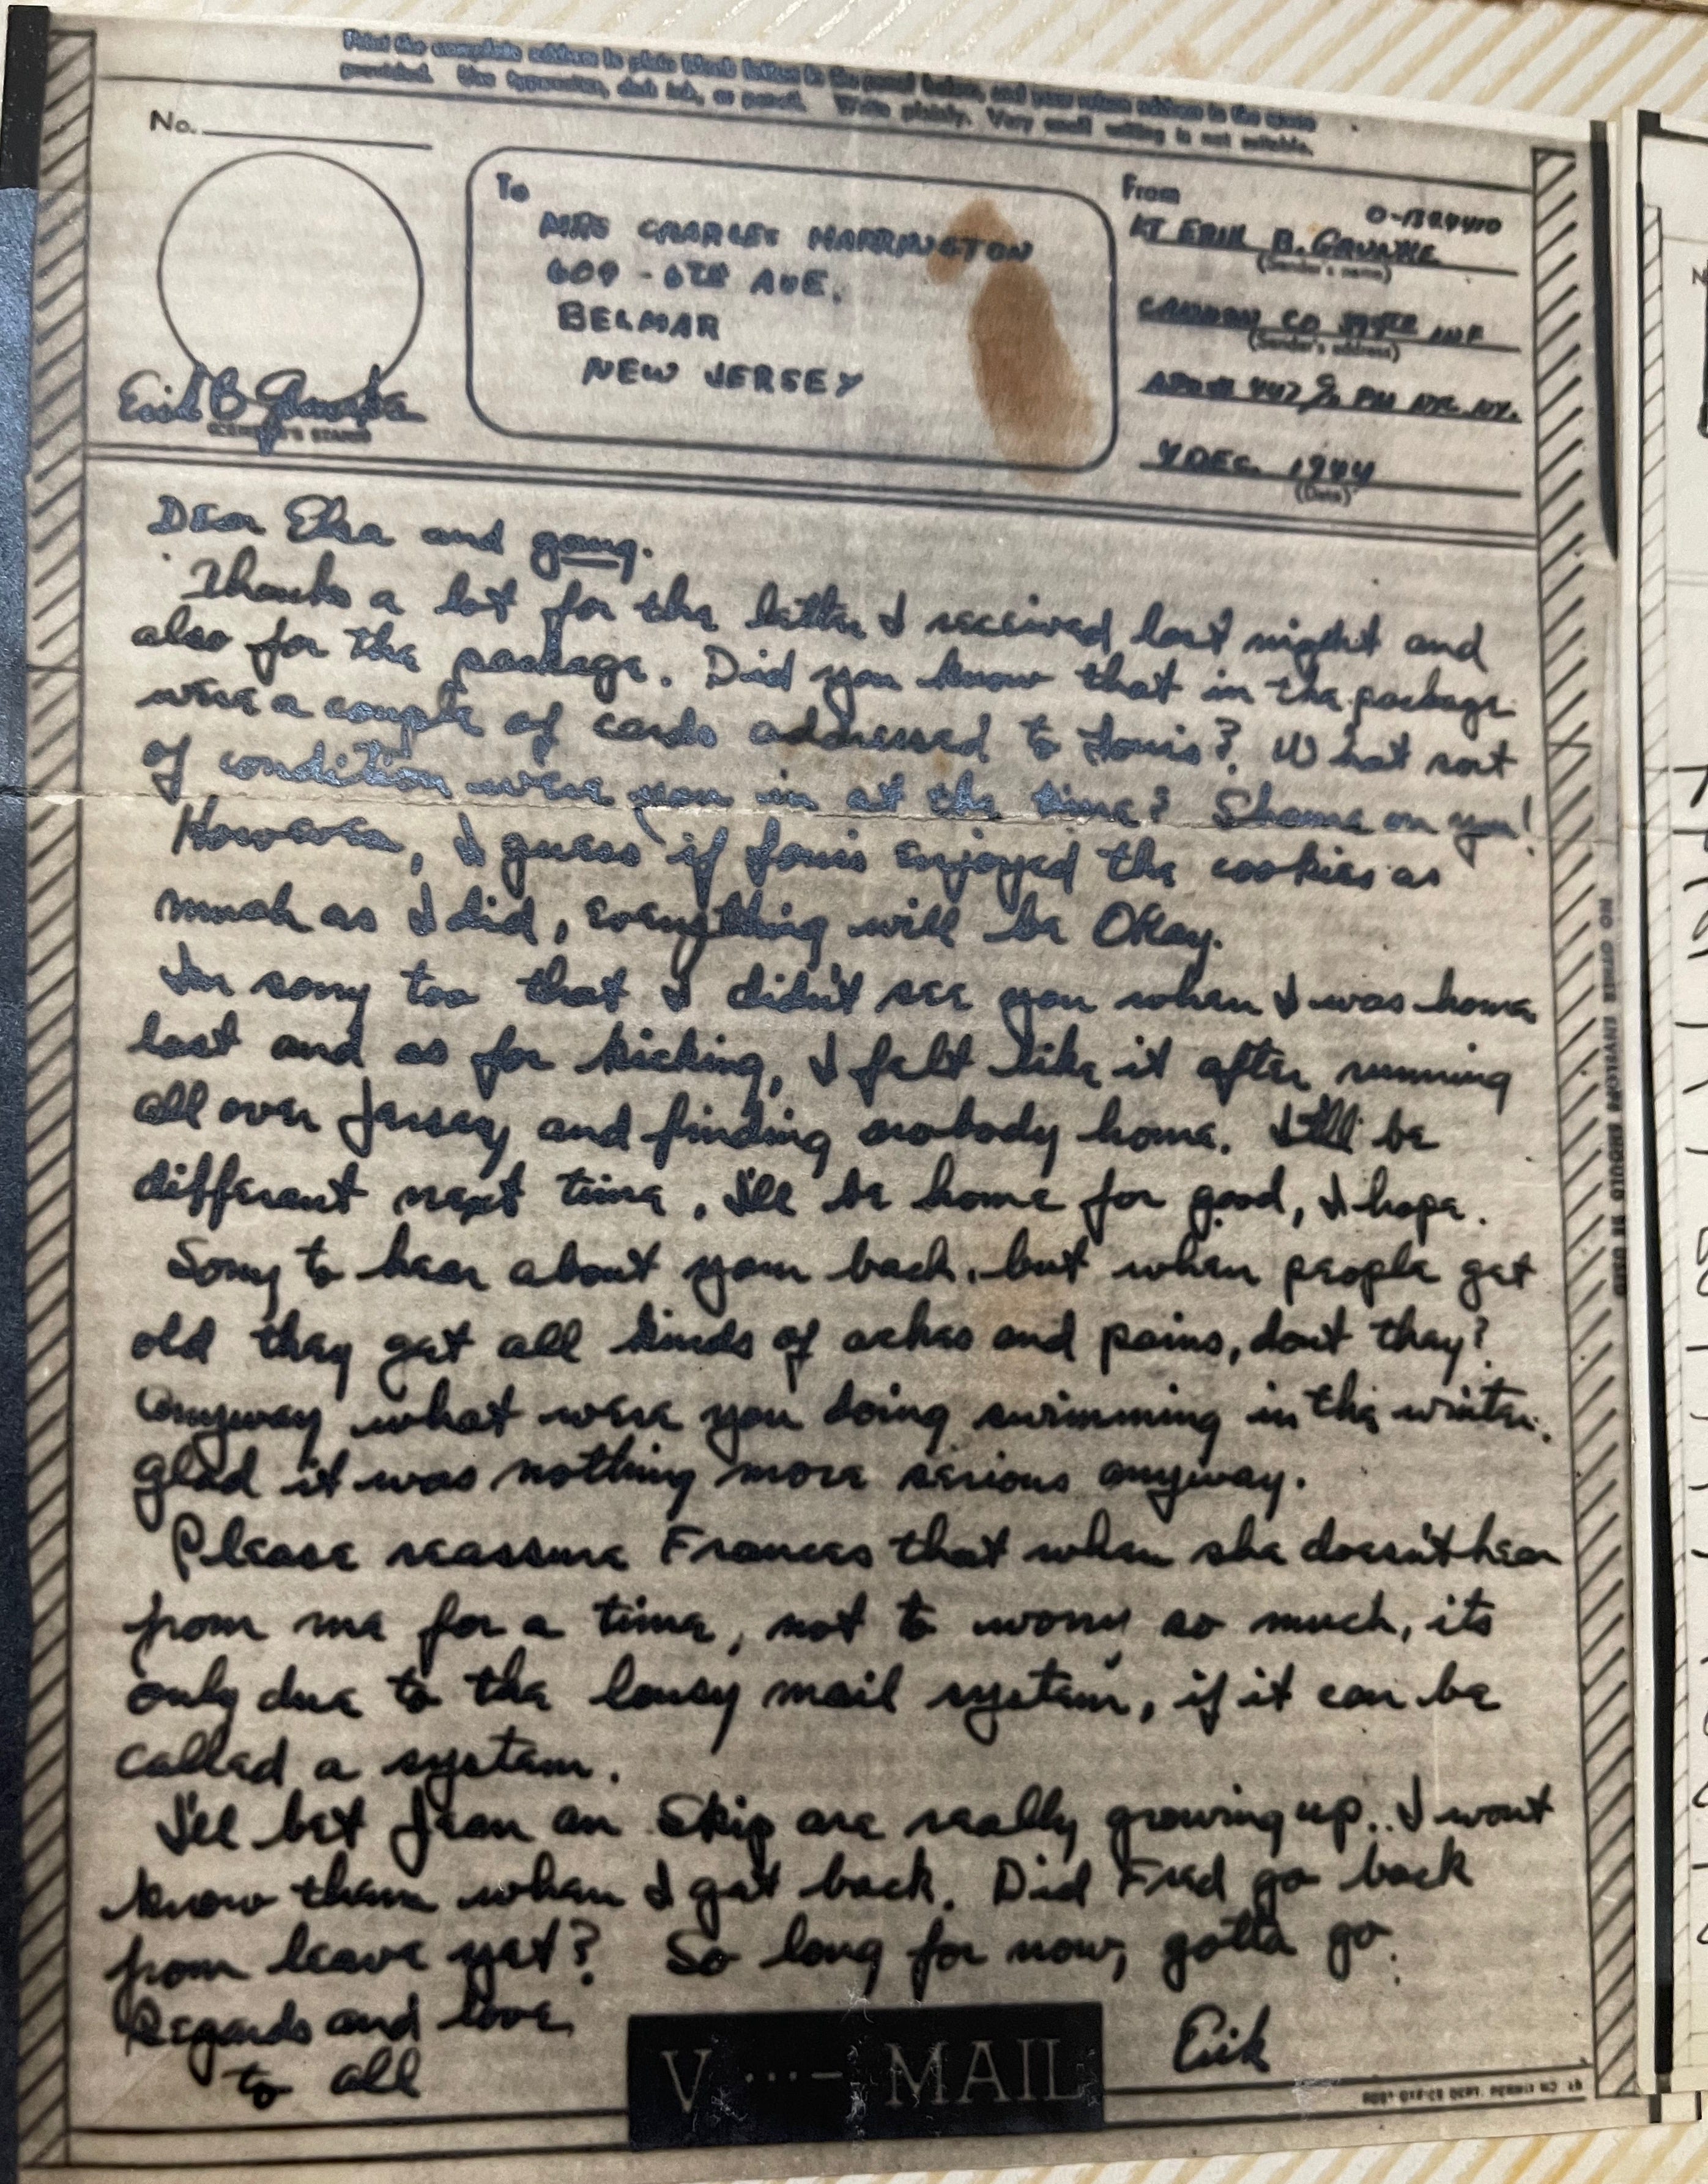 Print the complete address in plain block letters in the panel below, and your return address in the space
provided. Use typewriter, dark ink, or pencil. Write plainly. Very small writing is not suitable.
No.
To
MRS CHARLES HARRINGTON
609 - 6TH AVE.
BELMAR
NEW JERSEY
From
LT ERIK B.
(Sender's name)
CANNON CO INF
(Sender's address)
447 c/o PM NYC. NY.
4 DEC. 1944
(Date)
Erik B
(CENSOR'S STAMP)
Dear Elsa and gang.
Thanks a lot for the letter I received last night and
also for the package. Did you know that in the package
were a couple of cards addressed to Louis? What sort
of condition were you in at the time? Shame on you!
However, I guess if Louis enjoyed the cookies as
much as I did, everything will be Okay.
Im sorry too that I didn't see you when I was home
last and as for kicking, I felt like it after running
all over Jersey and finding nobody home. It'll be
different next time, I'll be home for good, I hope.
Sorry to hear about your back, but when people get
old they get all kinds of aches and pains, don't they?
Anyway what were you doing swimming in the winter.
Glad it was nothing more serious anyway.
Please reassure Frances that when she doesn't hear
from me for a time, not to worry so much, its
only due to the lousy mail system, if it can be
called a system.
I'll bet Jean an Skip are really growing up.. I wont
know them when I get back. Did Fred go back
from leave yet? So long for now, gotta go.
Regards and love
to all
Erik
V···–MAIL
NO OTHER ENVELOPE SHOULD BE USED